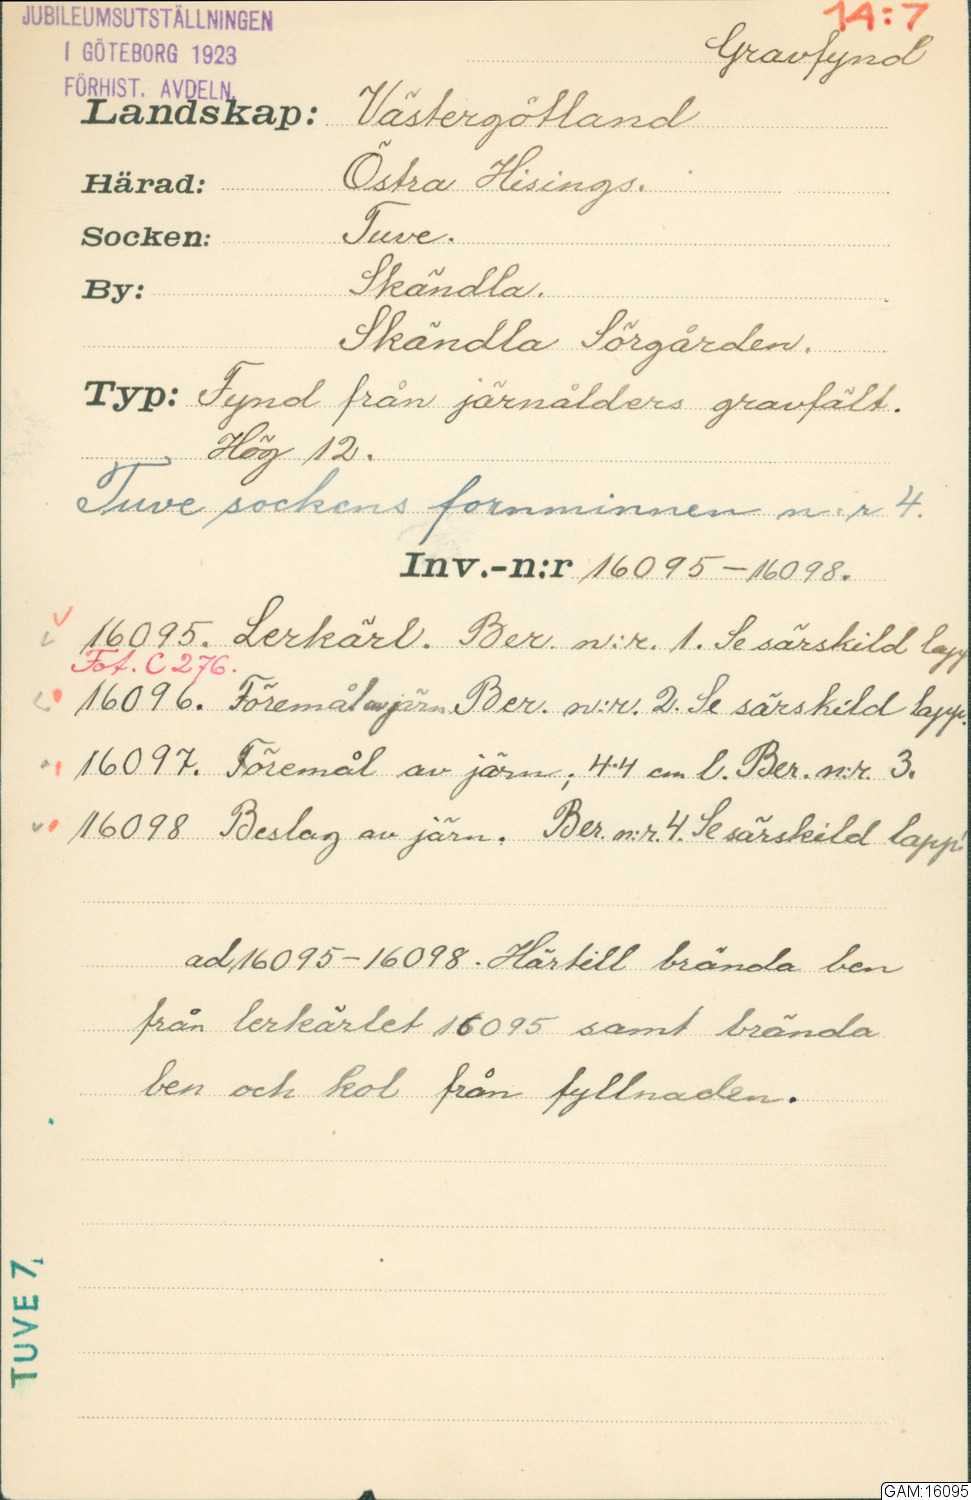 JUBILEUMSUTSTÄLLNINGEN
I GÖTEBORG 1923
FÖRHIST. AVDELN.
14:7
Gravfynd
Landskap: Västergötland
Härad: Östra Hisings.
Socken: Tuve.
By: Skändla.
Skändla Sörgården.
Typ: Fynd från järnålders gravfält.
Hög 12.
Tuve sockens fornminnen n:r 4.
Inv.-n:r 16095-16098.
16095. Lerkärl. Ber. n:r. 1. Se särskild lapp
Fot. C 276.
16096. Föremål av järn Ber. n:r. 2. Se särskild lapp.
16097. Föremål av järn; 4.4 cm l. Ber. n:r. 3.
16098 Beslag av järn. Ber. n:r. 4. Se särskild lapp!
ad 16095-16098. Härtill brända ben
från lerkärlet 16095 samt brända
ben och kol från fyllnaden.
TUVE 7,
GAM:16095